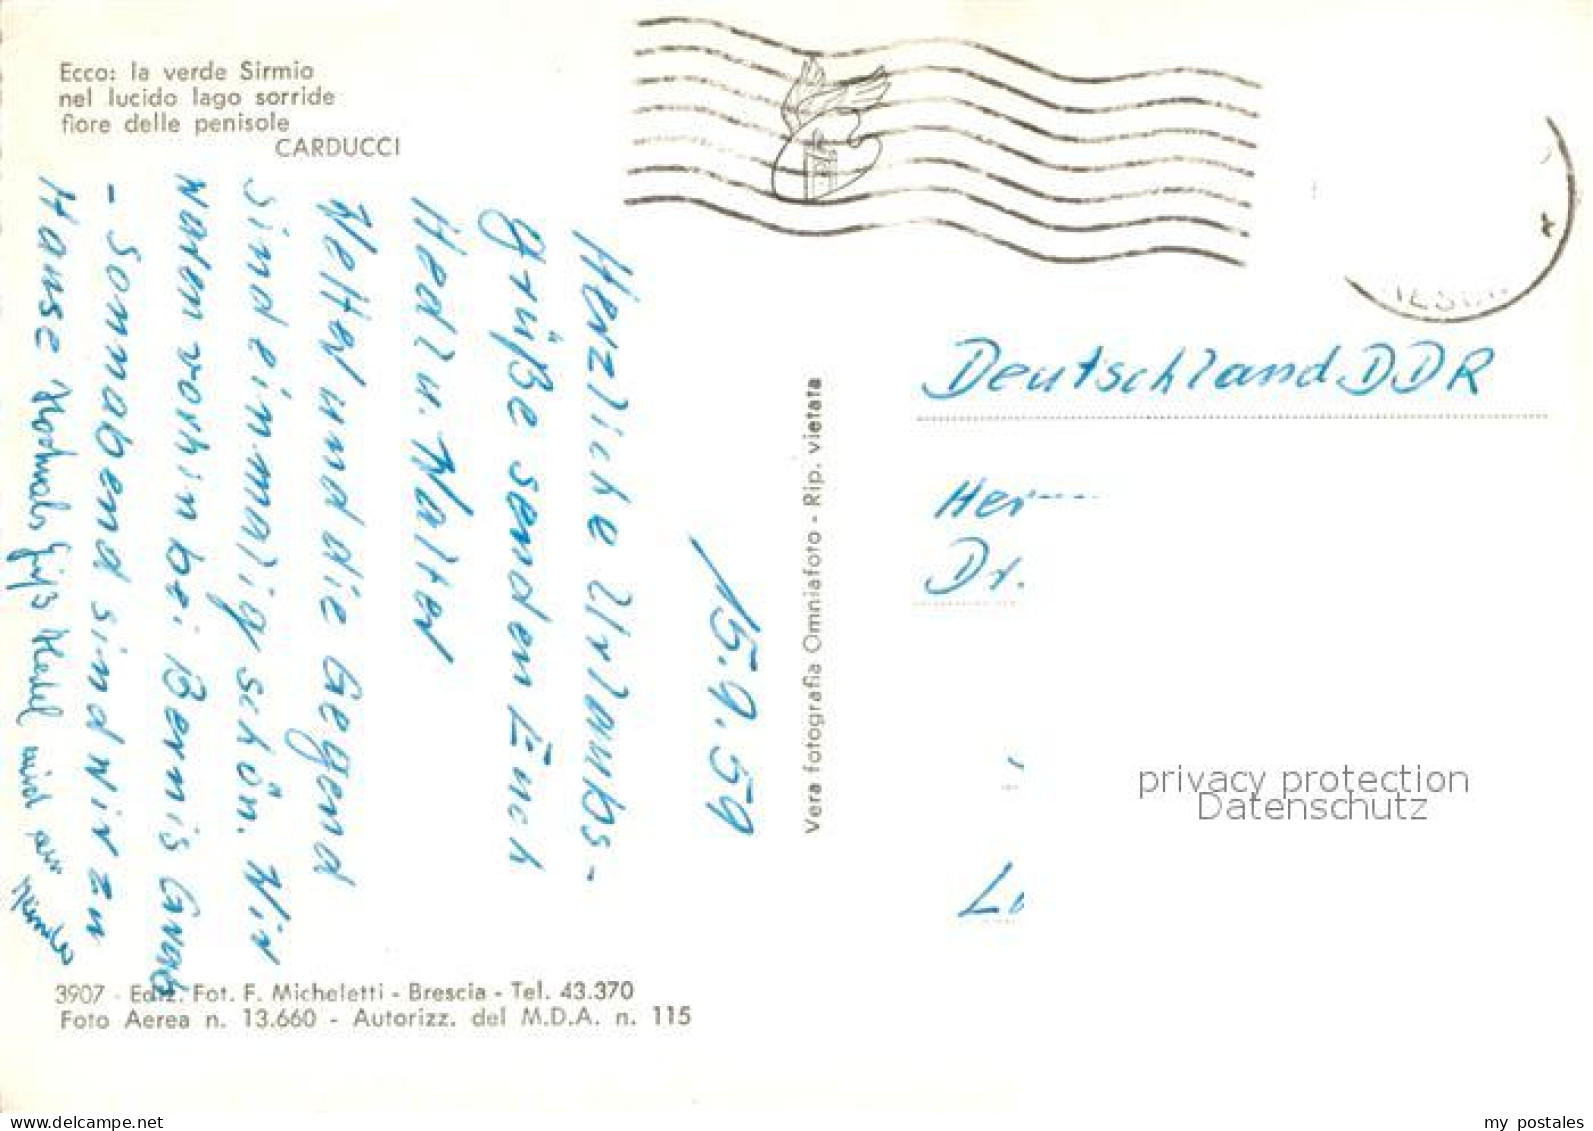 Ecco: la verde Sirmio
nel lucido lago sorride
fiore delle penisole
CARDUCCI
15.9.59
Herzliche Urlaubs-
grüße senden Euch
Hedl u. Walter
Wetter und die Gegend
sind einmalig schön. Wir
waren vorhin bei
- Sonnabend sind wir zu
Hause
Vera fotografia Omniafoto - Rip. vietata
Deutschland DDR
Herrn
Dr.
privacy protection
Datenschutz
3907 - Ediz. Fot. F. Micheletti - Brescia - Tel. 43.370
Foto Aerea n. 13.660 - Autorizz. del M.D.A. n. 115
www.delcampe.net
my_postales